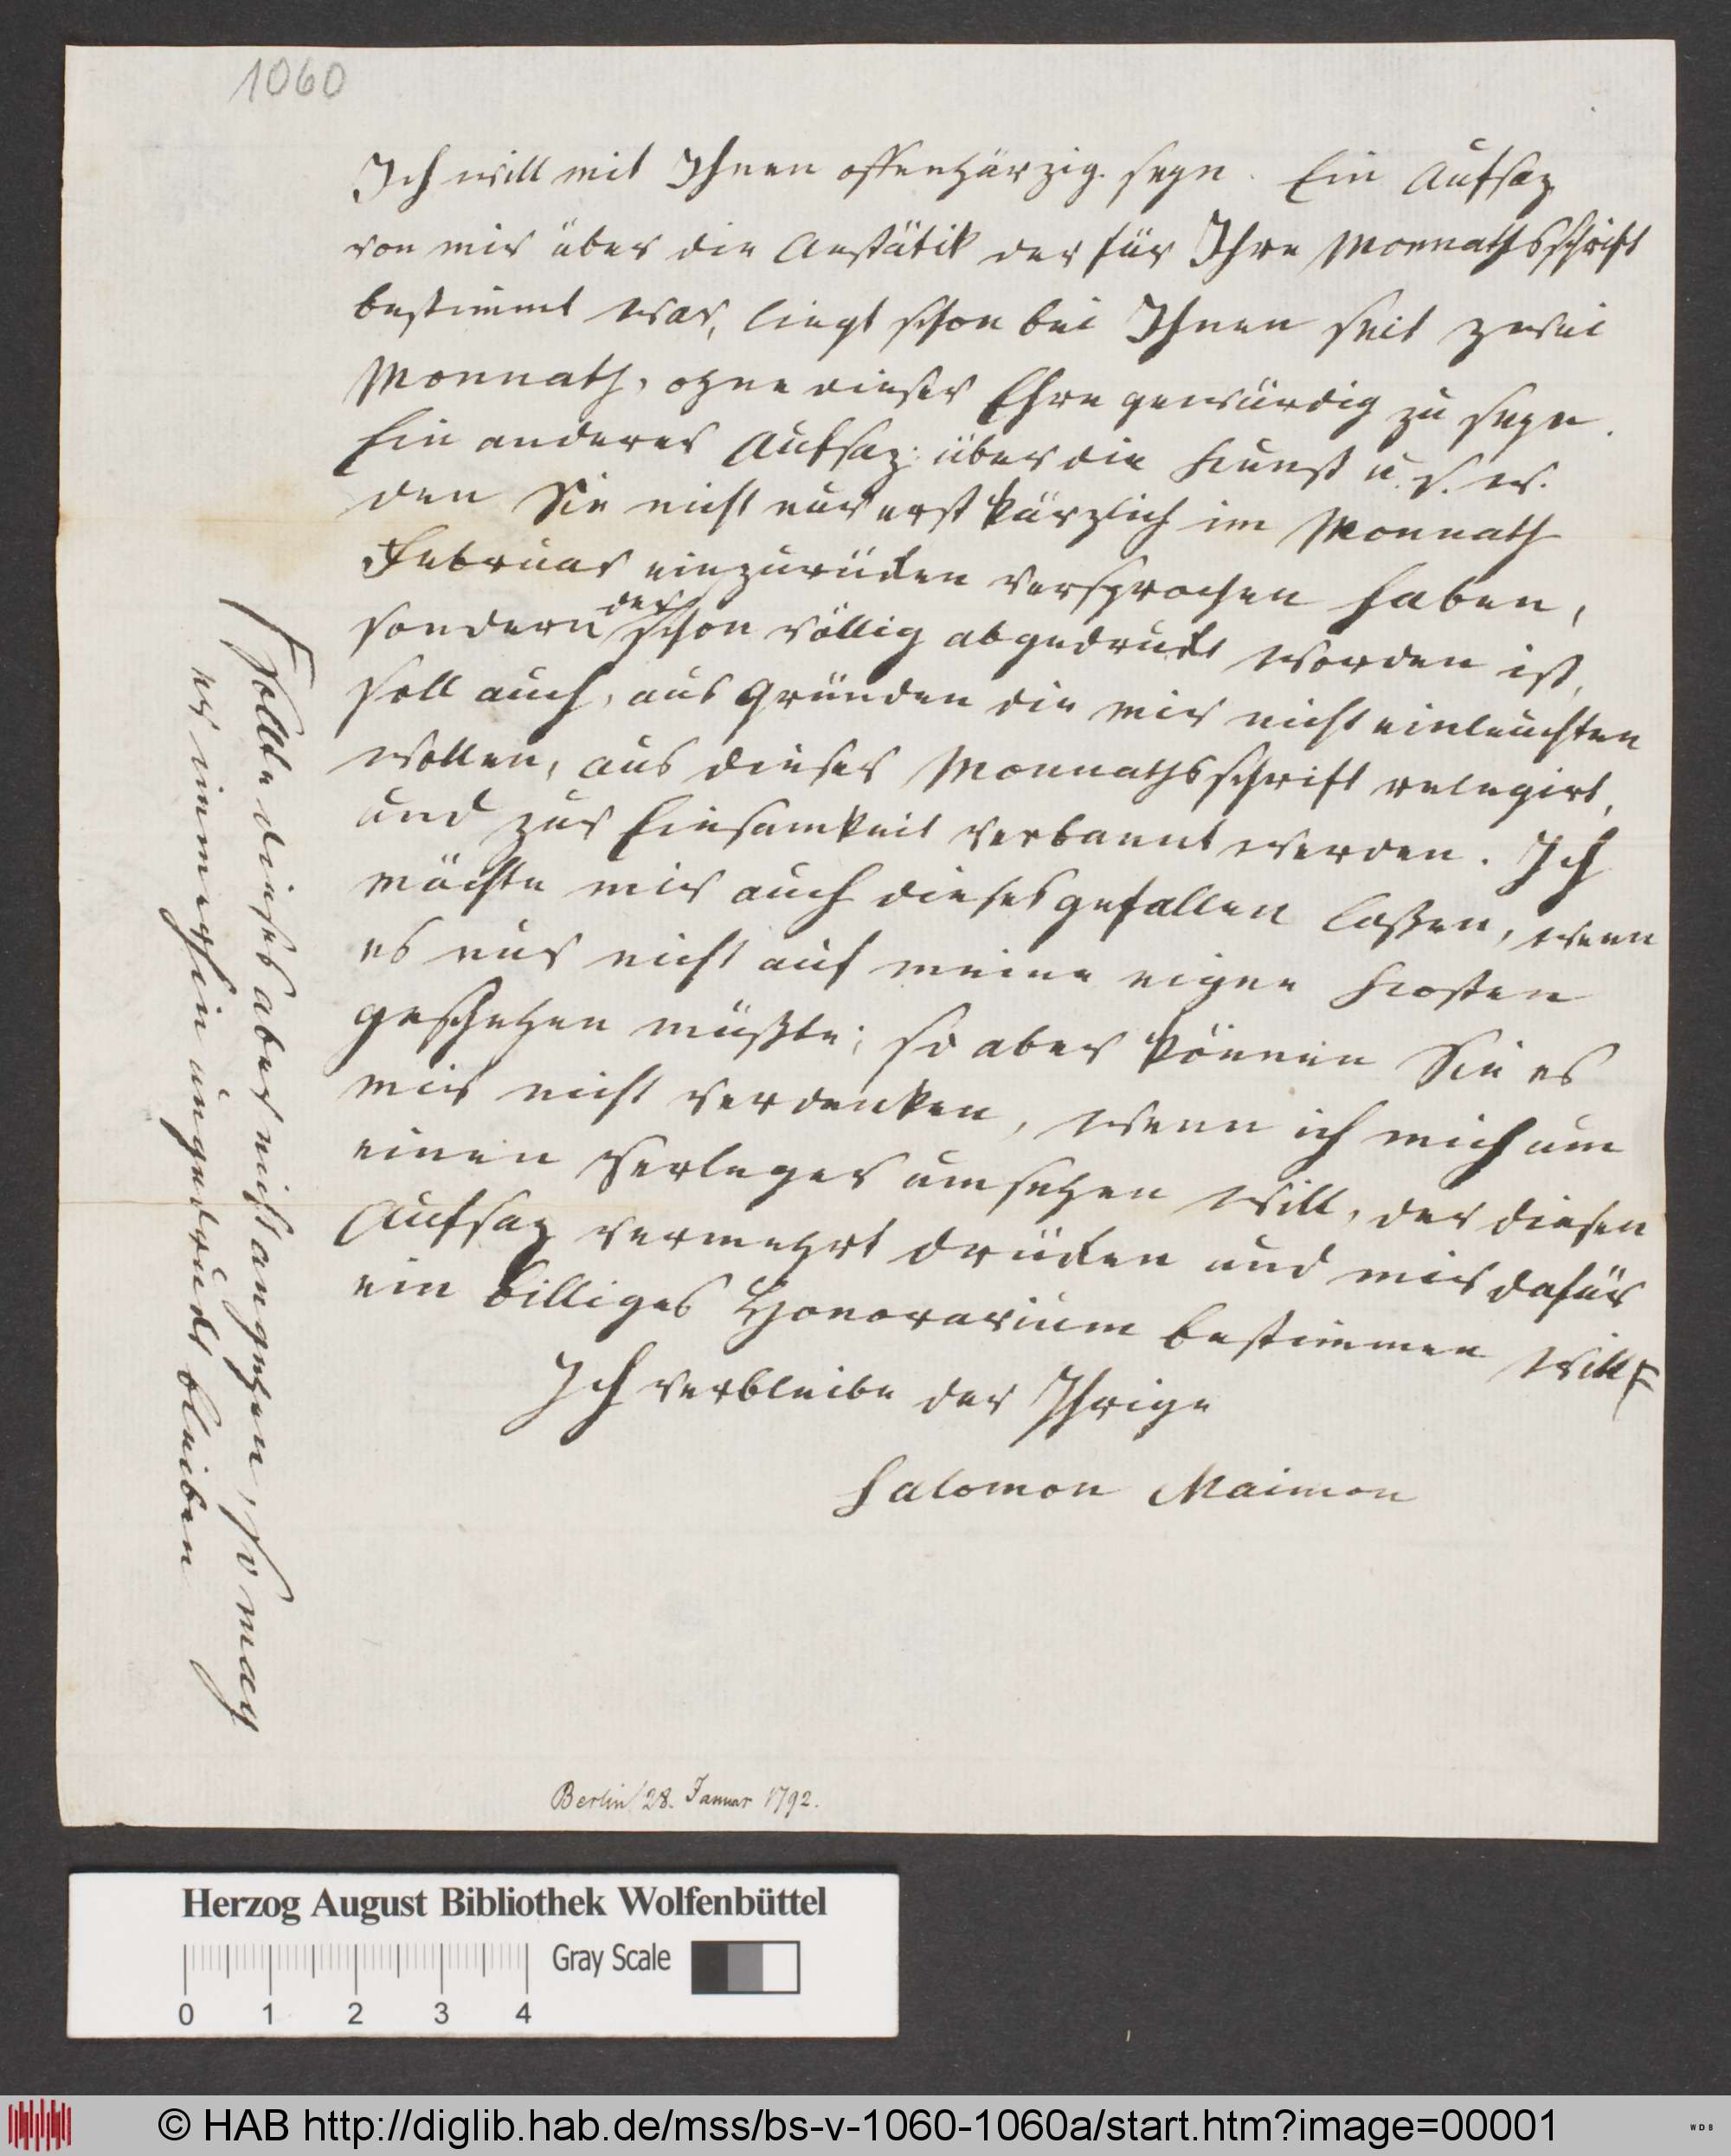 1060
Ich will mit Ihnen offenhärzig seyn. Ein Aufsaz
von mir über die Aestätik der für Ihre Monnathsschrift
bestimmt war, liegt schon bei Ihnen seit zwei
Monnath, ohne dieser Ehre gewürdig zu seyn.
Ein anderer Aufsaz: über die Kunst u. s. w.
den Sie nicht nur erst kürzlich im Monnath
Februar einzurüken versprochen haben,
sondern der schon völlig abgedrukt worden ist,
soll auch, aus Gründen die mir nicht einleuchten
wollen, aus dieser Monnathsschrift relegirt,
und zur Einsamkeit verbannt werden. Ich
möchte mir auch dieses gefallen laßen, wenn
es nur nicht auf meine eigne Kosten
geschehen müßte; so aber können Sie es
mir nicht verdenken, wenn ich mich um
einen Verleger umsehen will, der diesen
Aufsaz vermehrt drüken und mir dafür
ein billiges Honorarium bestimmen will F
Ich verbleibe der Ihrige
Salomon Maimon
F Sollte dieses aber nicht angehen, so mag
er immerhin ungedrukt bleiben
Berlin 28. Januar 1792.
Herzog August Bibliothek Wolfenbüttel
Gray Scale
0 1 2 3 4
© HAB http://diglib.hab.de/mss/bs-v-1060-1060a/start.htm?image=00001
WDB